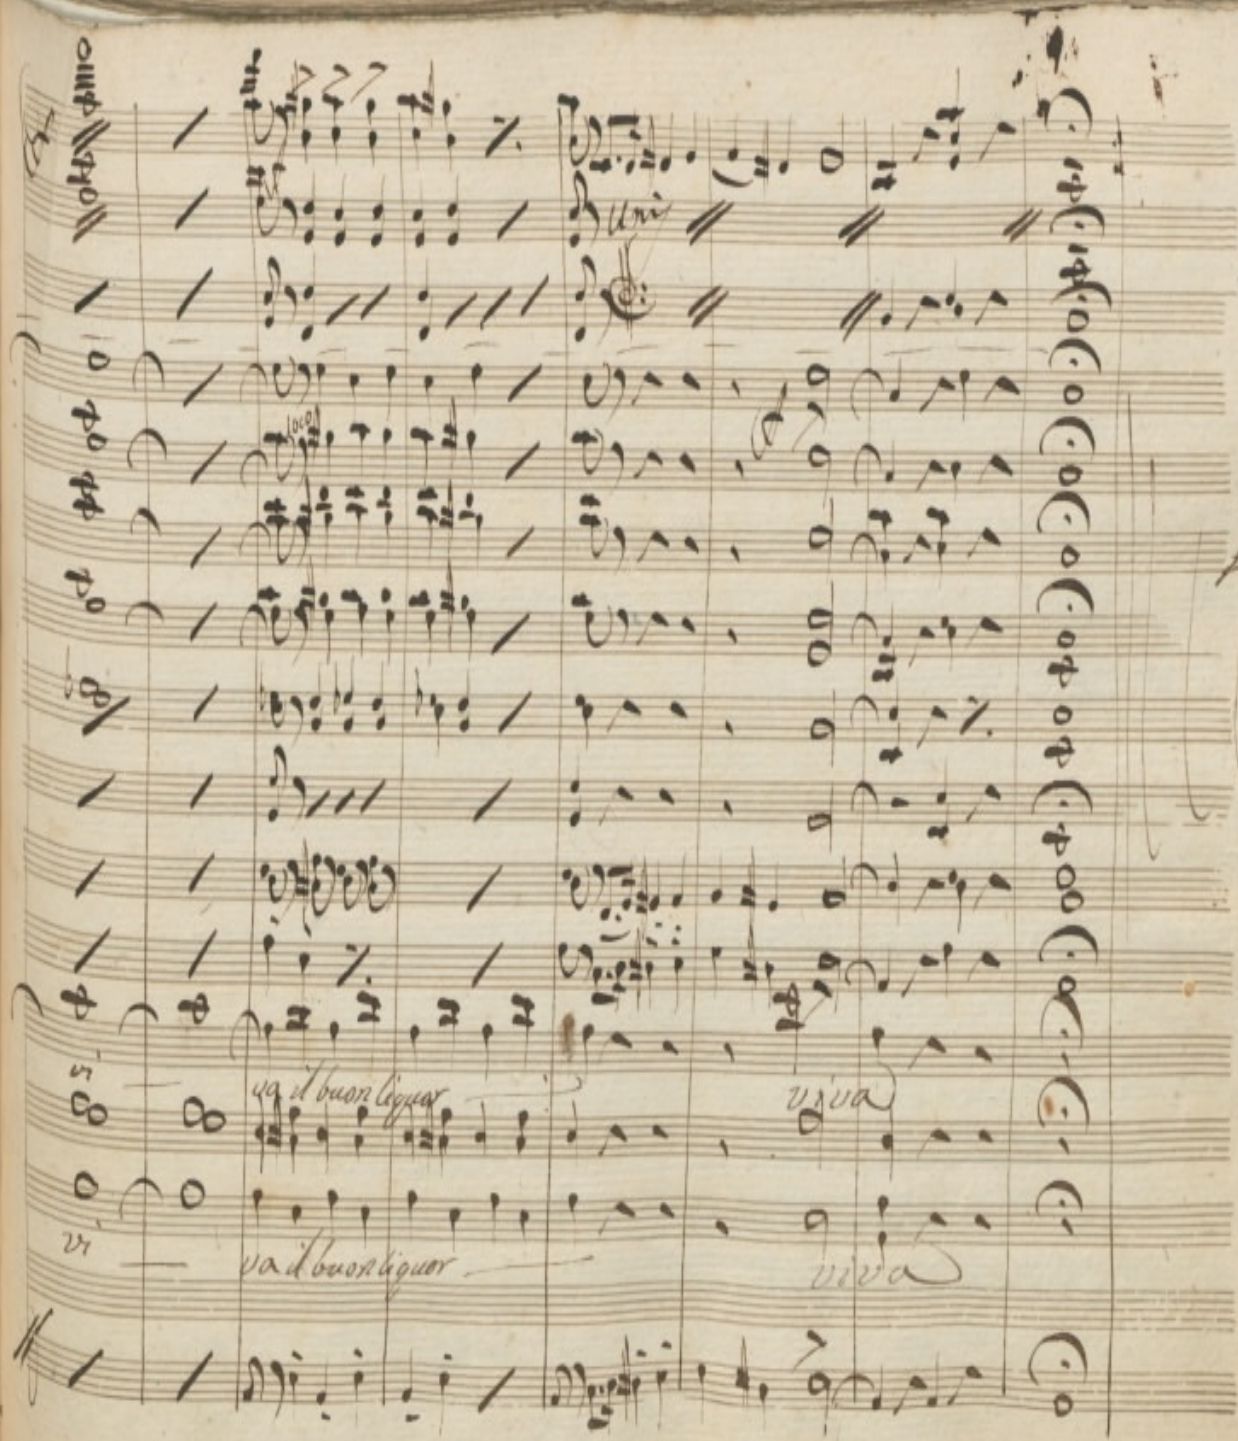 Unis
loco
vi va il buon liquor viva
vi va il buon liquor viva